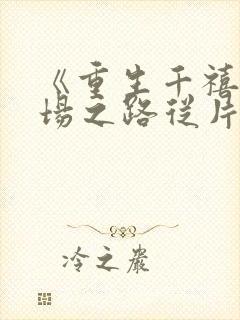 《重生千禧
场之路從片
冷之嚴